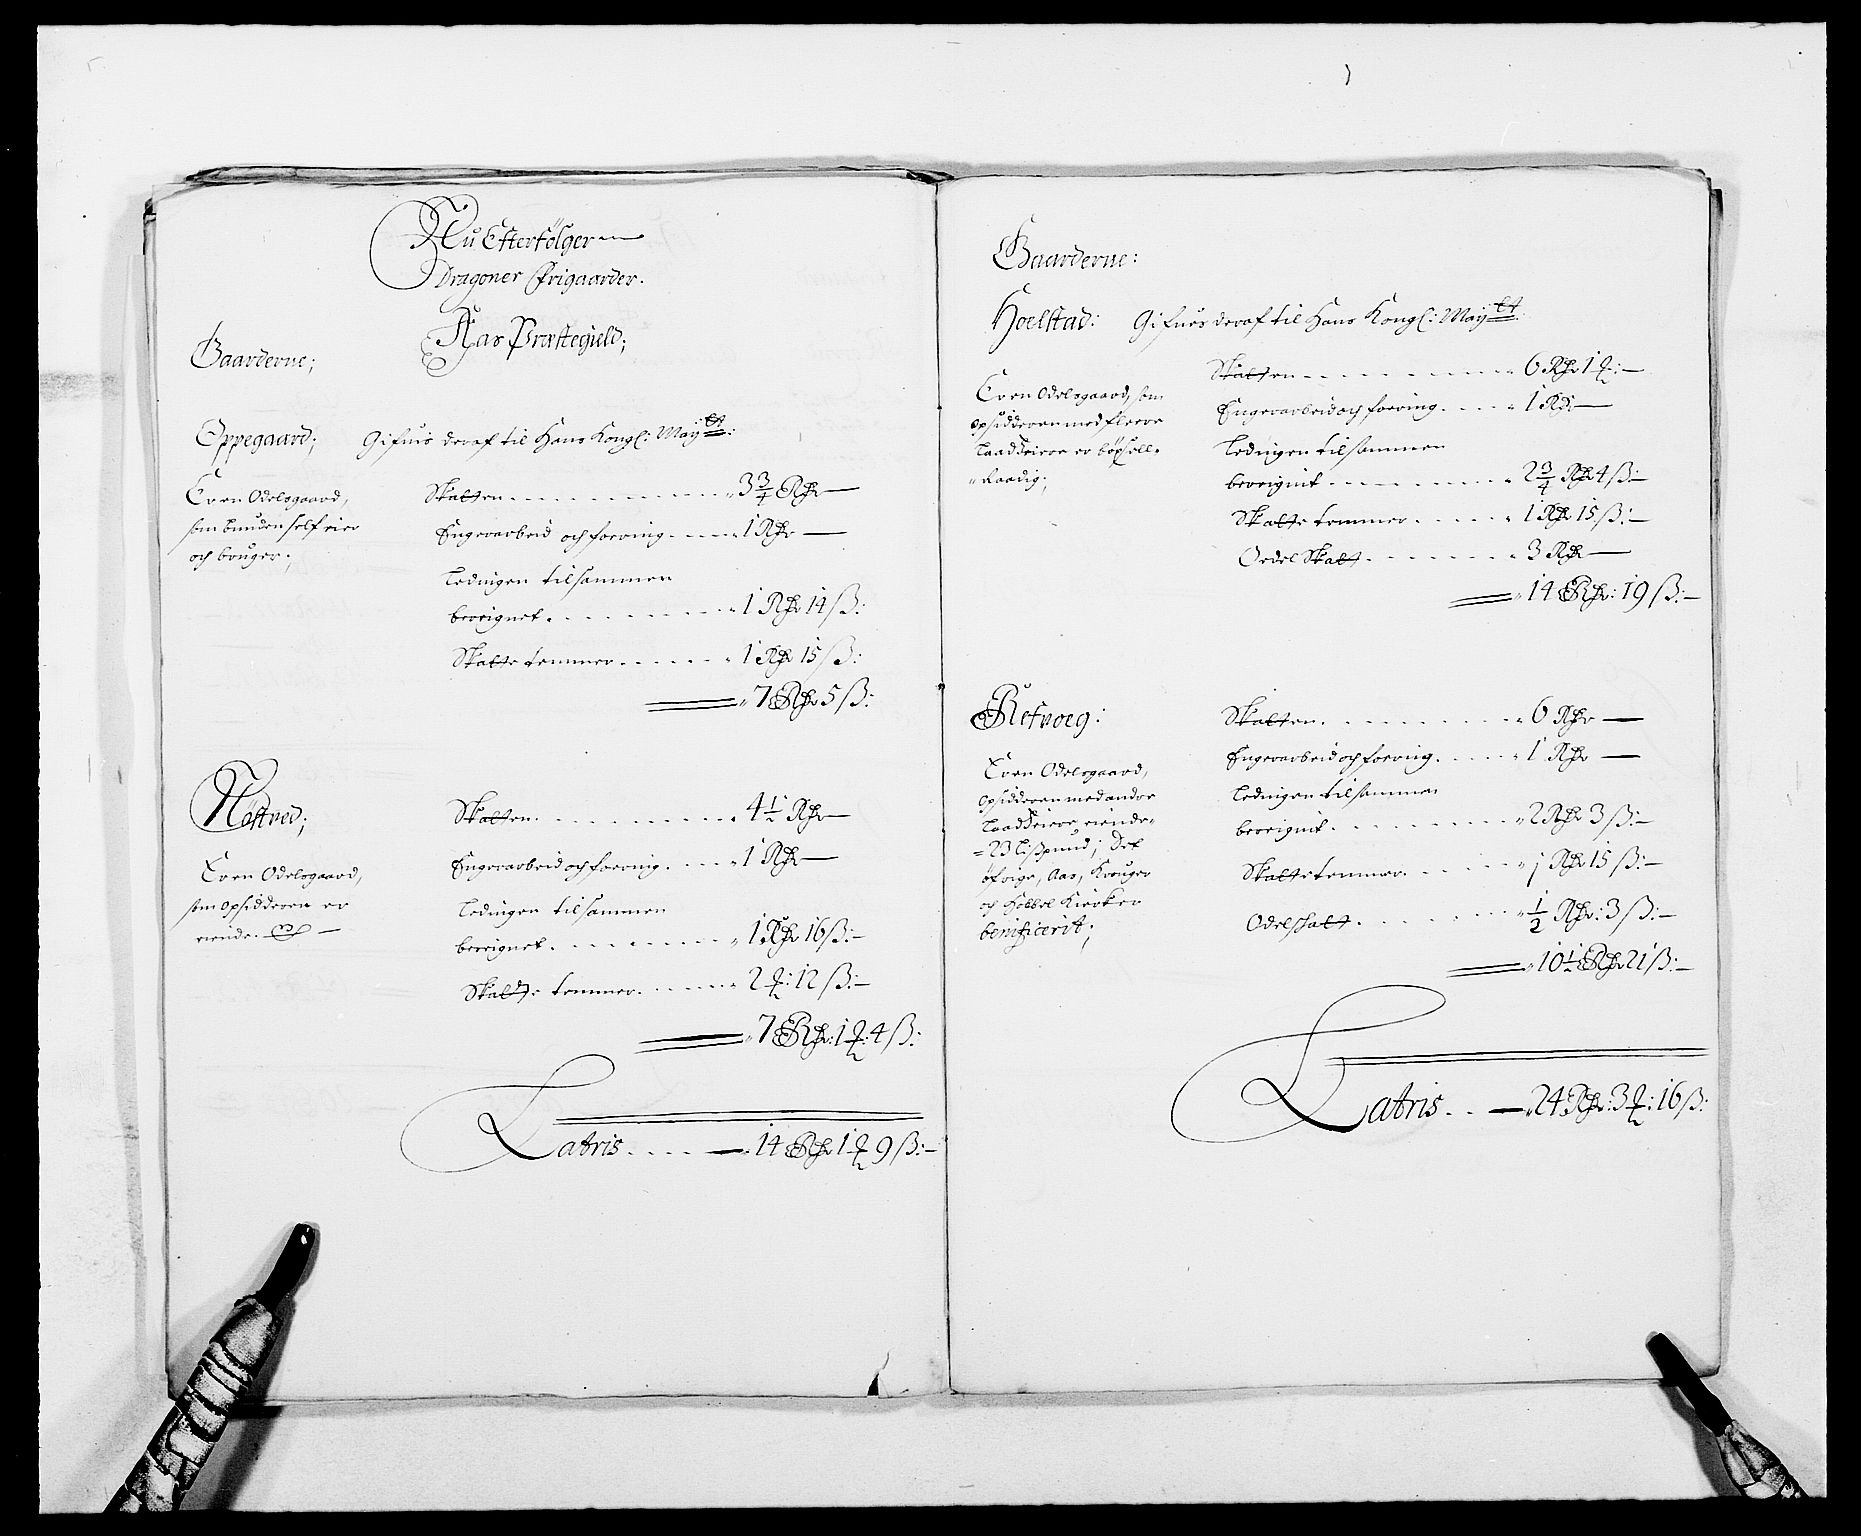 Nu Efterfølger
Dragoner Frigaarder.
Aas Præstegield;
Gaarderne;
Oppegaard; Gifuis deraf til Hans Kongl: Mayᵗᵗ:
Er en Odelsgaard,
som bunden self eier
och bruger;
Skatten . . . . 3 3/4 Rdr —
Engerarbeid och foering . . . . 1 Rdr —
Ledingen tilsammen
beregnet . . . . 1 Rdr 14 ß:
Skatte tømmer . . . . 1 Rdr 15 ß:
7 Rdr 5 ß:
Nøstved;
Er en Odelsgaard,
som opsidderen er
eiende.
Skatten . . . . 4 1/2 Rdr —
Engerarbeid och foering . . . . 1 Rdr —
Ledingen tilsammen
beregnet . . . . 1 Rdr 16 ß: —
Skatte tømmer . . . . 2 ℔: 12 ß: —
7 Rdr: 1 ℔: 4 ß:
Latris . . . . — 14 Rdr 1 ℔ 9 ß: —
Gaarderne:
Hoelstad: Gifues deraf til Hans Kongl: Mayᵗᵗ:
Er en Odelsgaard, som
opsidderen med fleere
Laaddeiere er bøxsell-
Raadig;
Skatten . . . . 6 Rdr 1 ℔: —
Engerarbeid och foering . . . . 1 Rdr —
Ledingen tilsammen
beregnit . . . . 2 3/4 Rdr 4 ß: —
Skatte tømmer . . . . 1 Rdr 15 ß: —
Oedel Skatt . . . . 3 Rdr —
14 Rdr: 19 ß: —
Refvoeg:
Er en Odelsgaard,
opsidderen med andre
Laaddeiere eiende
23 Lißpund; Det
øfrige, Aas, Krouger
och Kiercker
benificerit;
Skatten . . . . 6 Rdr —
Engerarbeid och foering . . . . 1 Rdr —
Ledingen tilsammen
beregnit . . . . 2 Rdr 3 ß: —
Skatte tømmer . . . . 1 Rdr 15 ß: —
Odelskatt . . . . 1/2 Rdr: 3 ß: —
10 1/2 Rdr 21 ß: —
Latris . . — 24 Rdr: 3 ℔: 16 ß: